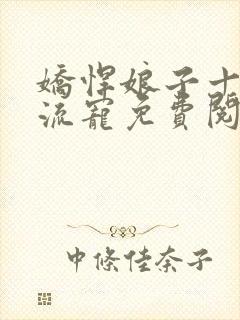 嬌悍娘子十
流寵免費閱
中條佳奈子